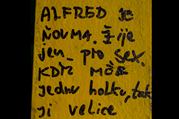 ALFRED je
ŇOUMA. Žije
jen pro sex.
KDYŽ MÁ
jednu holku, tak
ji velice